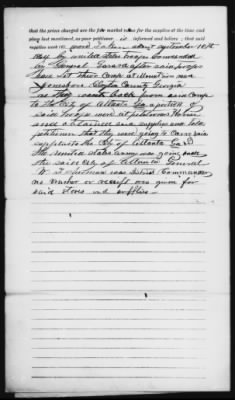 that the prices charged are the fair market rates for the supplies at the time and
place last mentioned, as your petitioner is informed and believe, that said
supplies were so used taken about September 10th
1864 by United States Troops Commanded
by General after said troops
have left their Camp at Mountain near
Jonesboro Clayton County Georgia
as they went back from said Camp
to the City of Atlanta Ga a portion of
said troops were at petitioners House
and obtained said supplies and told
petitioner that they were going to Carry said
supplies to the City of Atlanta Ga
The United States Army was going back
the said City of Atlanta General
W. T. Sherman was District Commander
no voucher or receipt was given for
said stores and supplies